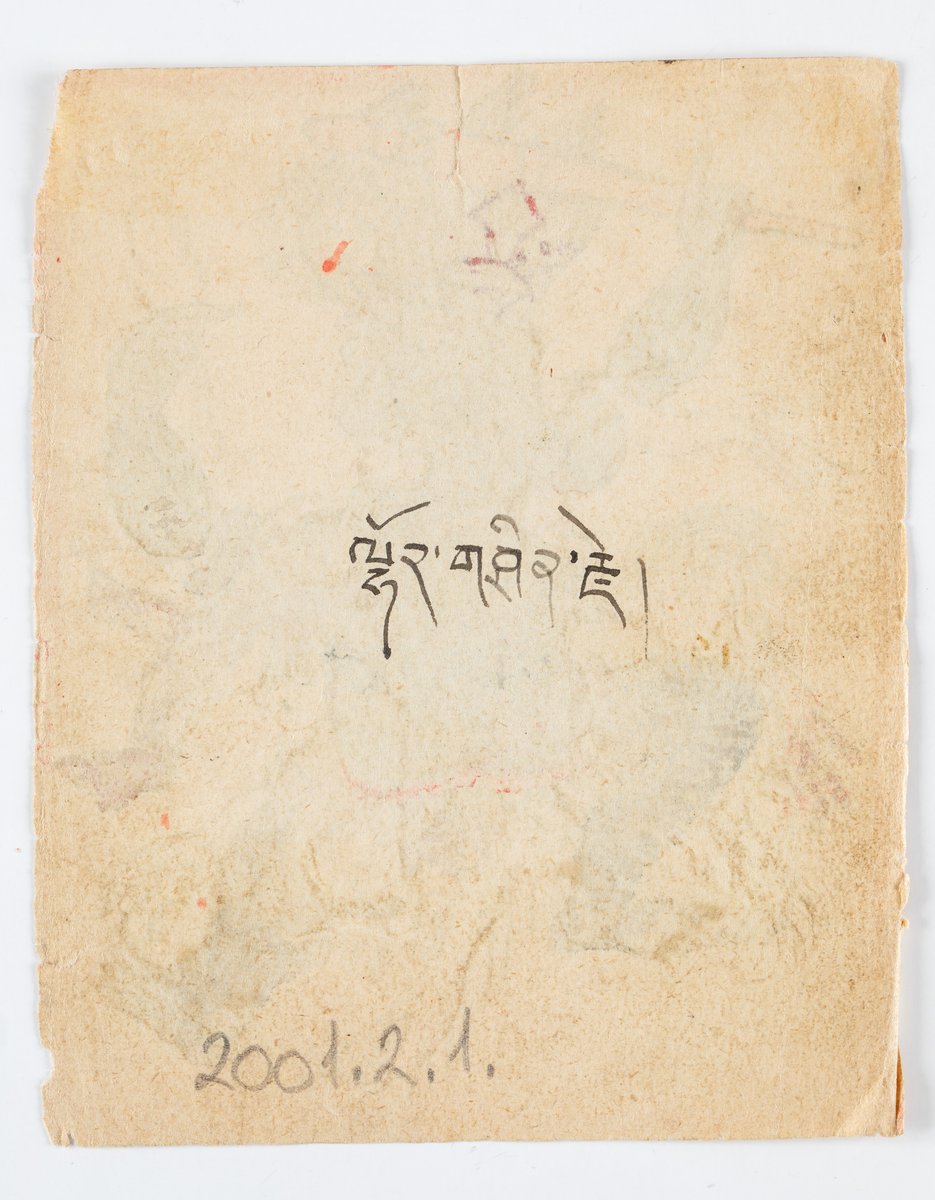 ལྷོར་གཤིན་རྗེ།
2001.2.1.